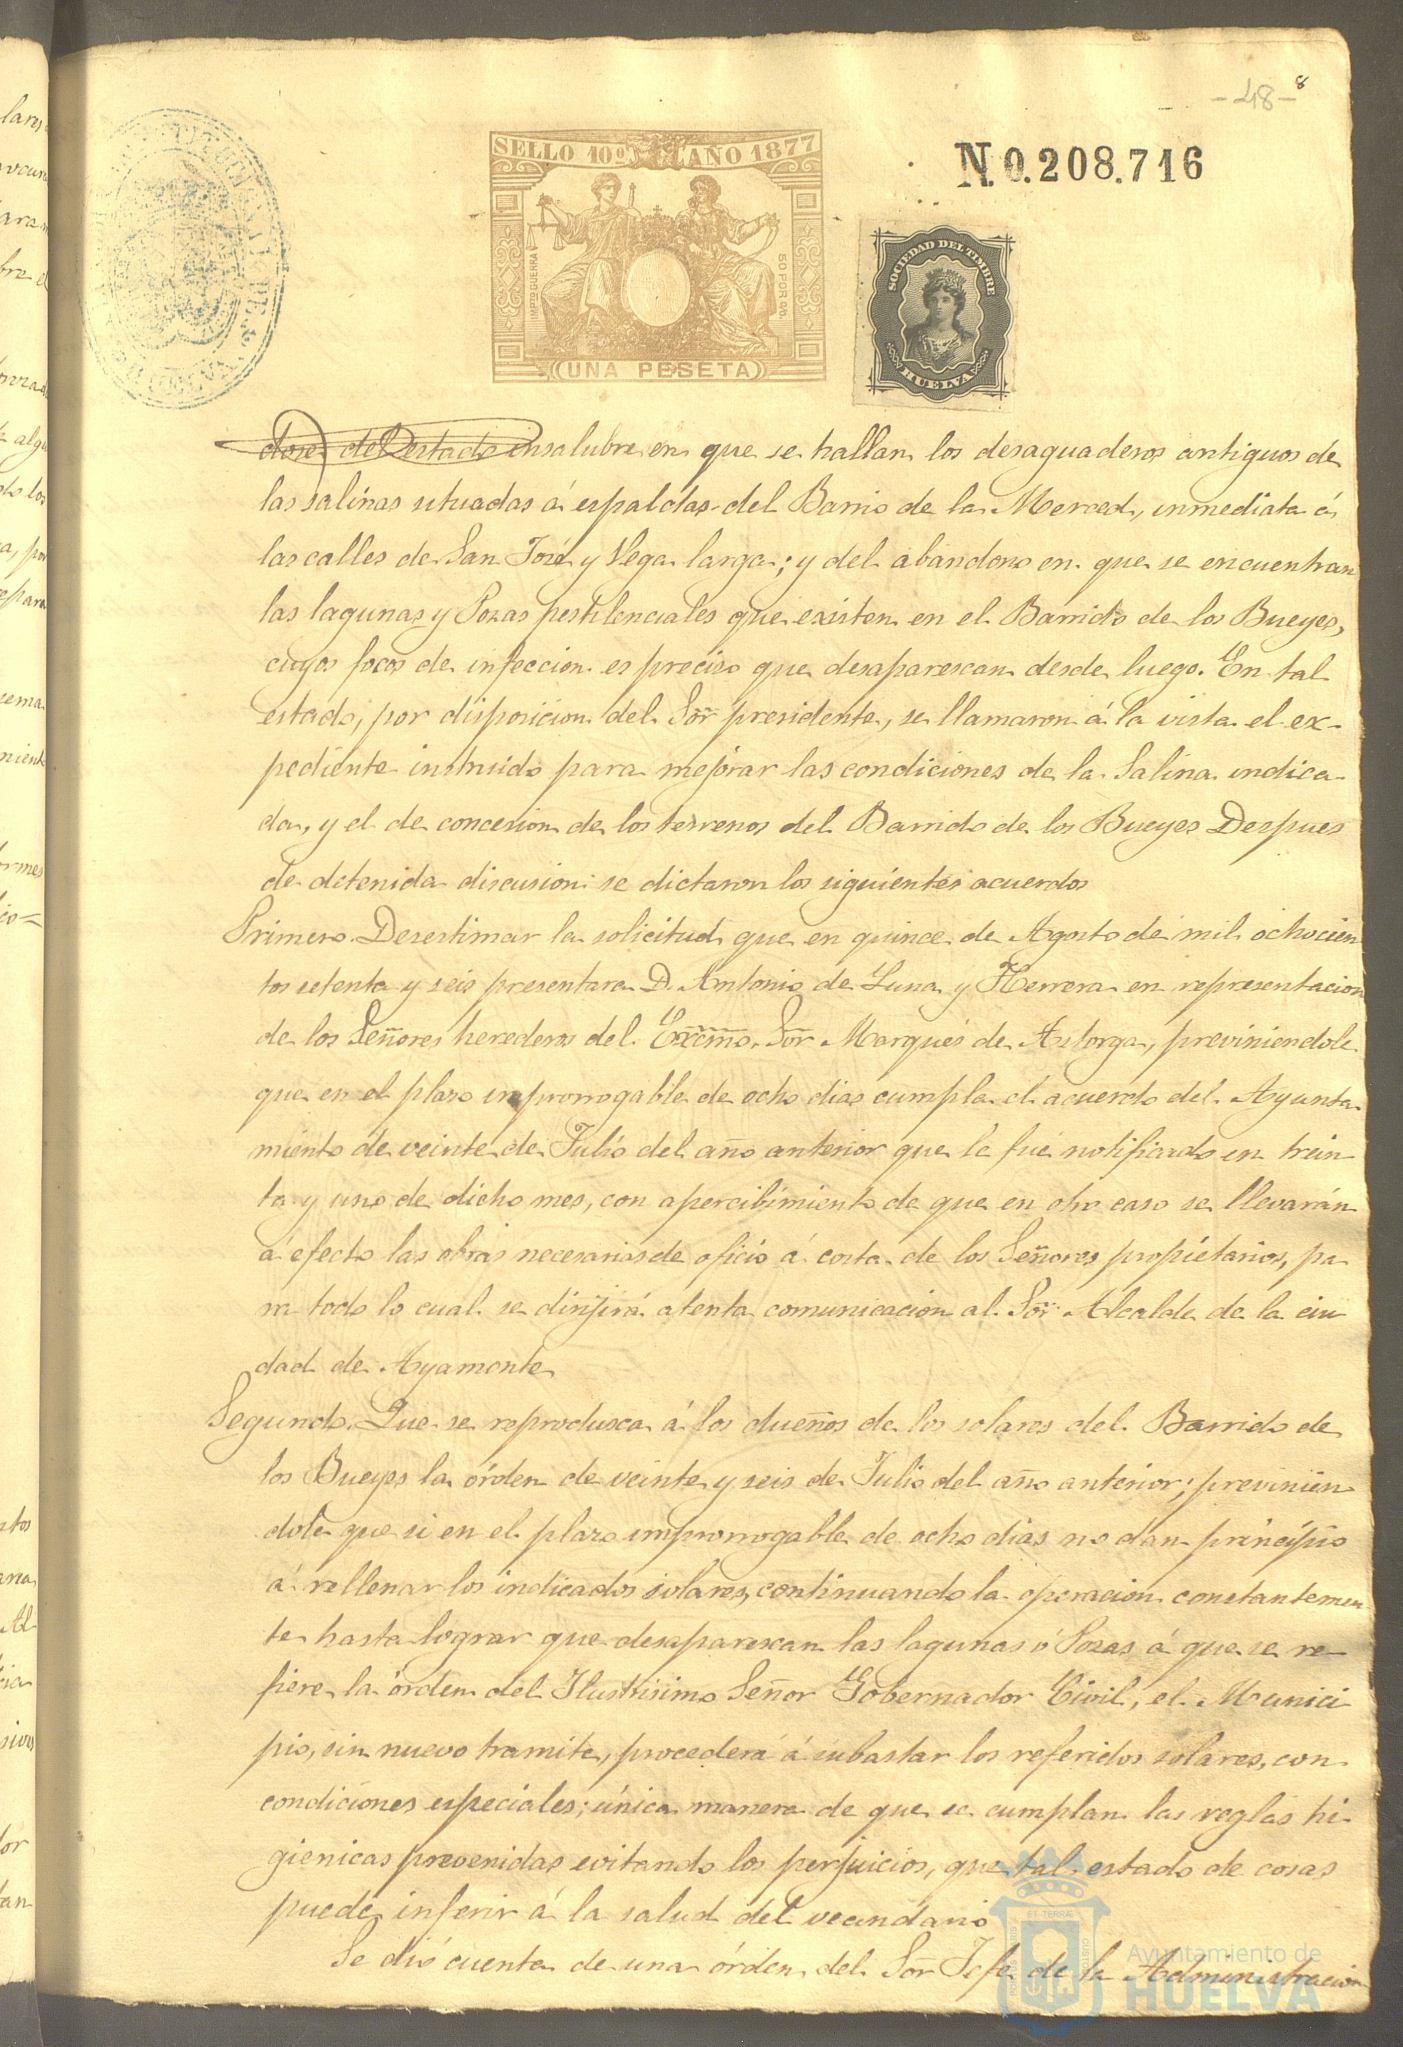 - 48 - 8
SELLO 10º AÑO 1877
N. 0.208.716
IMPTO GUERRA
50 POR 0/0
UNA PESETA
SOCIEDAD DEL TIMBRE
HUELVA
dores del Estado insalubre en que se hallan los desaguaderos antiguos de
las salinas situadas á espaldas del Barrio de la Merced, inmediata á
las calles de San José y Vega larga; y del abandono en que se encuentran
las lagunas y Pozas pestilenciales que existen en el Barrido de los Bueyes,
cuyos focos de infeccion es preciso que desaparescan desde luego. En tal
estado, por disposicion del Sor̃ presidente, se llamaron á la vista el ex-
pediente instruido para mejorar las condiciones de la Salina indica-
da, y el de concesion de los terrenos del Barrido de los Bueyes Despues
de detenida discusion se dictaron los siguientes acuerdos
Primero. Desestimar la solicitud que en quince de Agosto de mil ochocien
tos setenta y seis presentara D. Antonio de Luna y Herrera en representacion
de los Señores herederos del Excm̃o. Sor̃ Marqués de Astorga, previniendole
que en el plazo improrrogable de ocho dias cumpla el acuerdo del Ayunta
miento de veinte de Julio del año anterior que le fué notificado en trein
ta y uno de dicho mes, con apercibimiento de que en otro caso se llevarán
á efecto las obras necesarias de oficio á costa de los Señores propietarios, pa
ra todo lo cual se dirijirá atenta comunicacion al Sor̃ Alcalde de la ciu
dad de Ayamonte
Segundo. Que se reprodusca á los dueños de los solares del Barrido de
los Bueyes la órden de veinte y seis de Julio del año anterior; previnien
dole que si en el plazo improrrogable de ocho dias no dan principio
á rellenar los indicados solares, continuando la operacion constantemen
te hasta lograr que desaparescan las lagunas ó Pozas á que se re-
fiere la órden del Ilustrisimo Señor Gobernador Civil, el Munici
pio, sin nuevo tramite, procederá á subastar los referidos solares, con
condiciones especiales; única manera de que se cumplan las reglas hi-
gienicas prevenidas evitando los perjuicios, que tal estado de cosas
puede inferir á la salud del vecindario
Se dió cuenta de una órden del Sor̃ Jefe de la Administracion
Ayuntamiento de
HUELVA